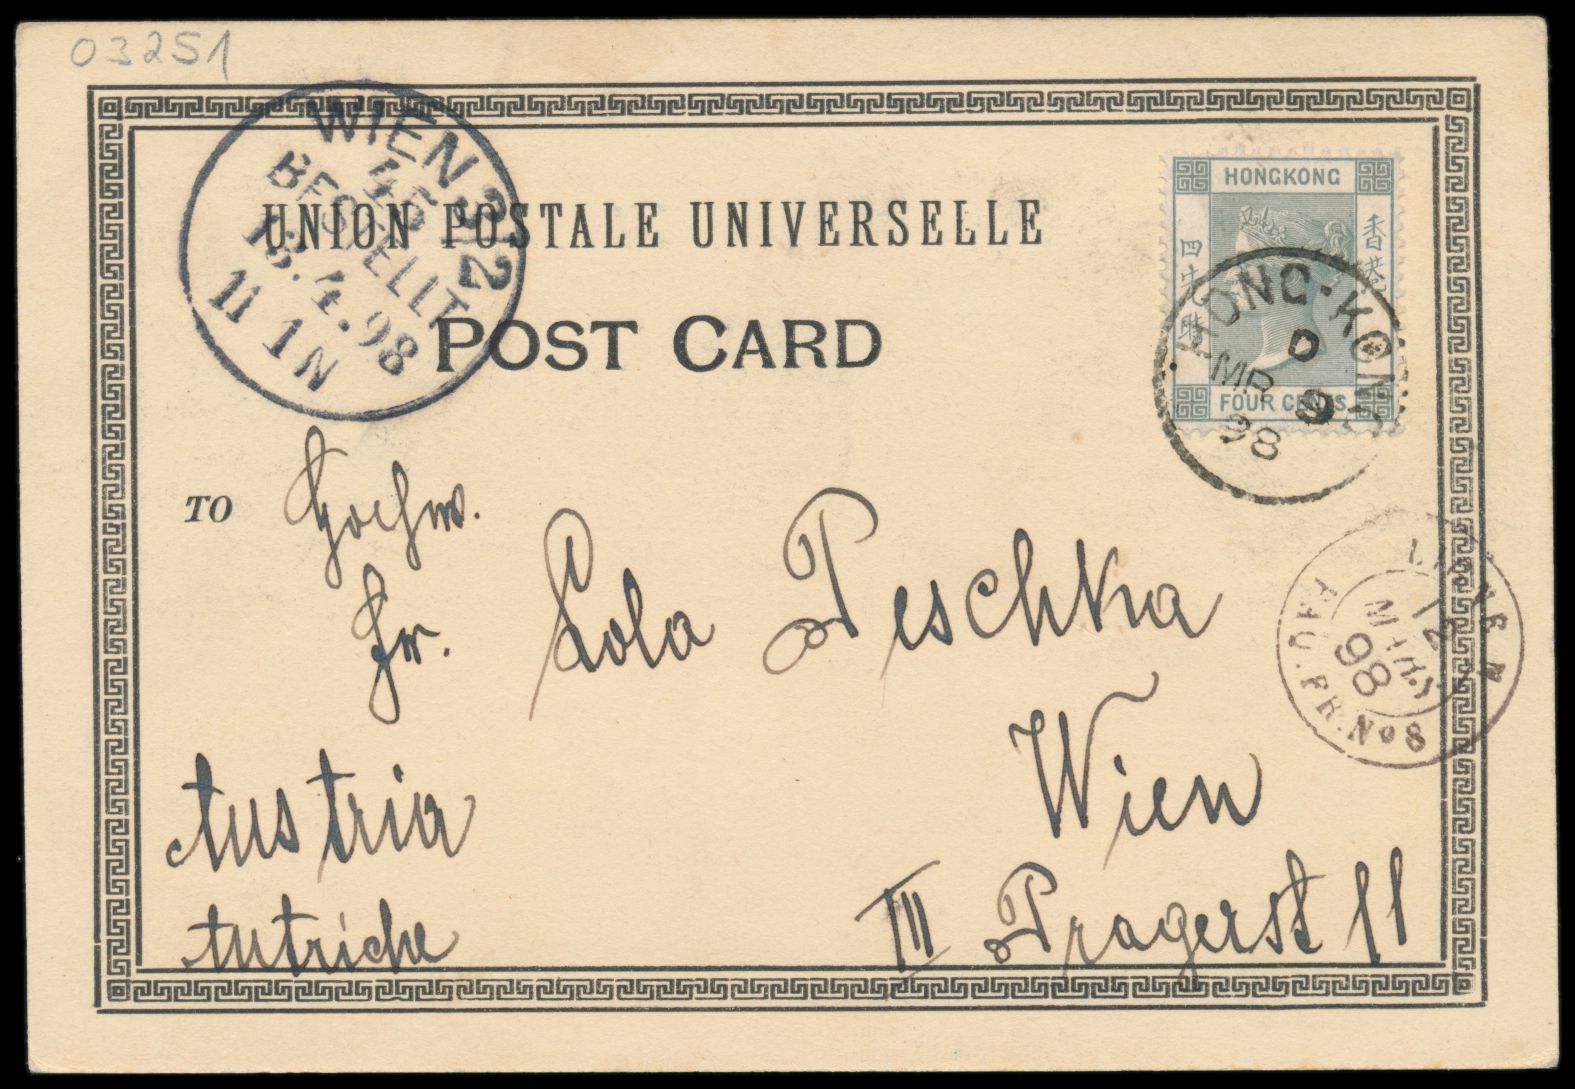 03251
WIEN 3/2
45
BESTELLT
13.4.98
11 1N
UNION POSTALE UNIVERSELLE
POST CARD
HONGKONG
香港
四先時
FOUR CENTS
HONG-KONG
D
MR 9
98
TO
Hochw.
Fr. Lola Peschka
LIGNE N
12
MARS
98
PAQ. FR. No 8
Wien
III Pragerst 11
Austria
Autriche